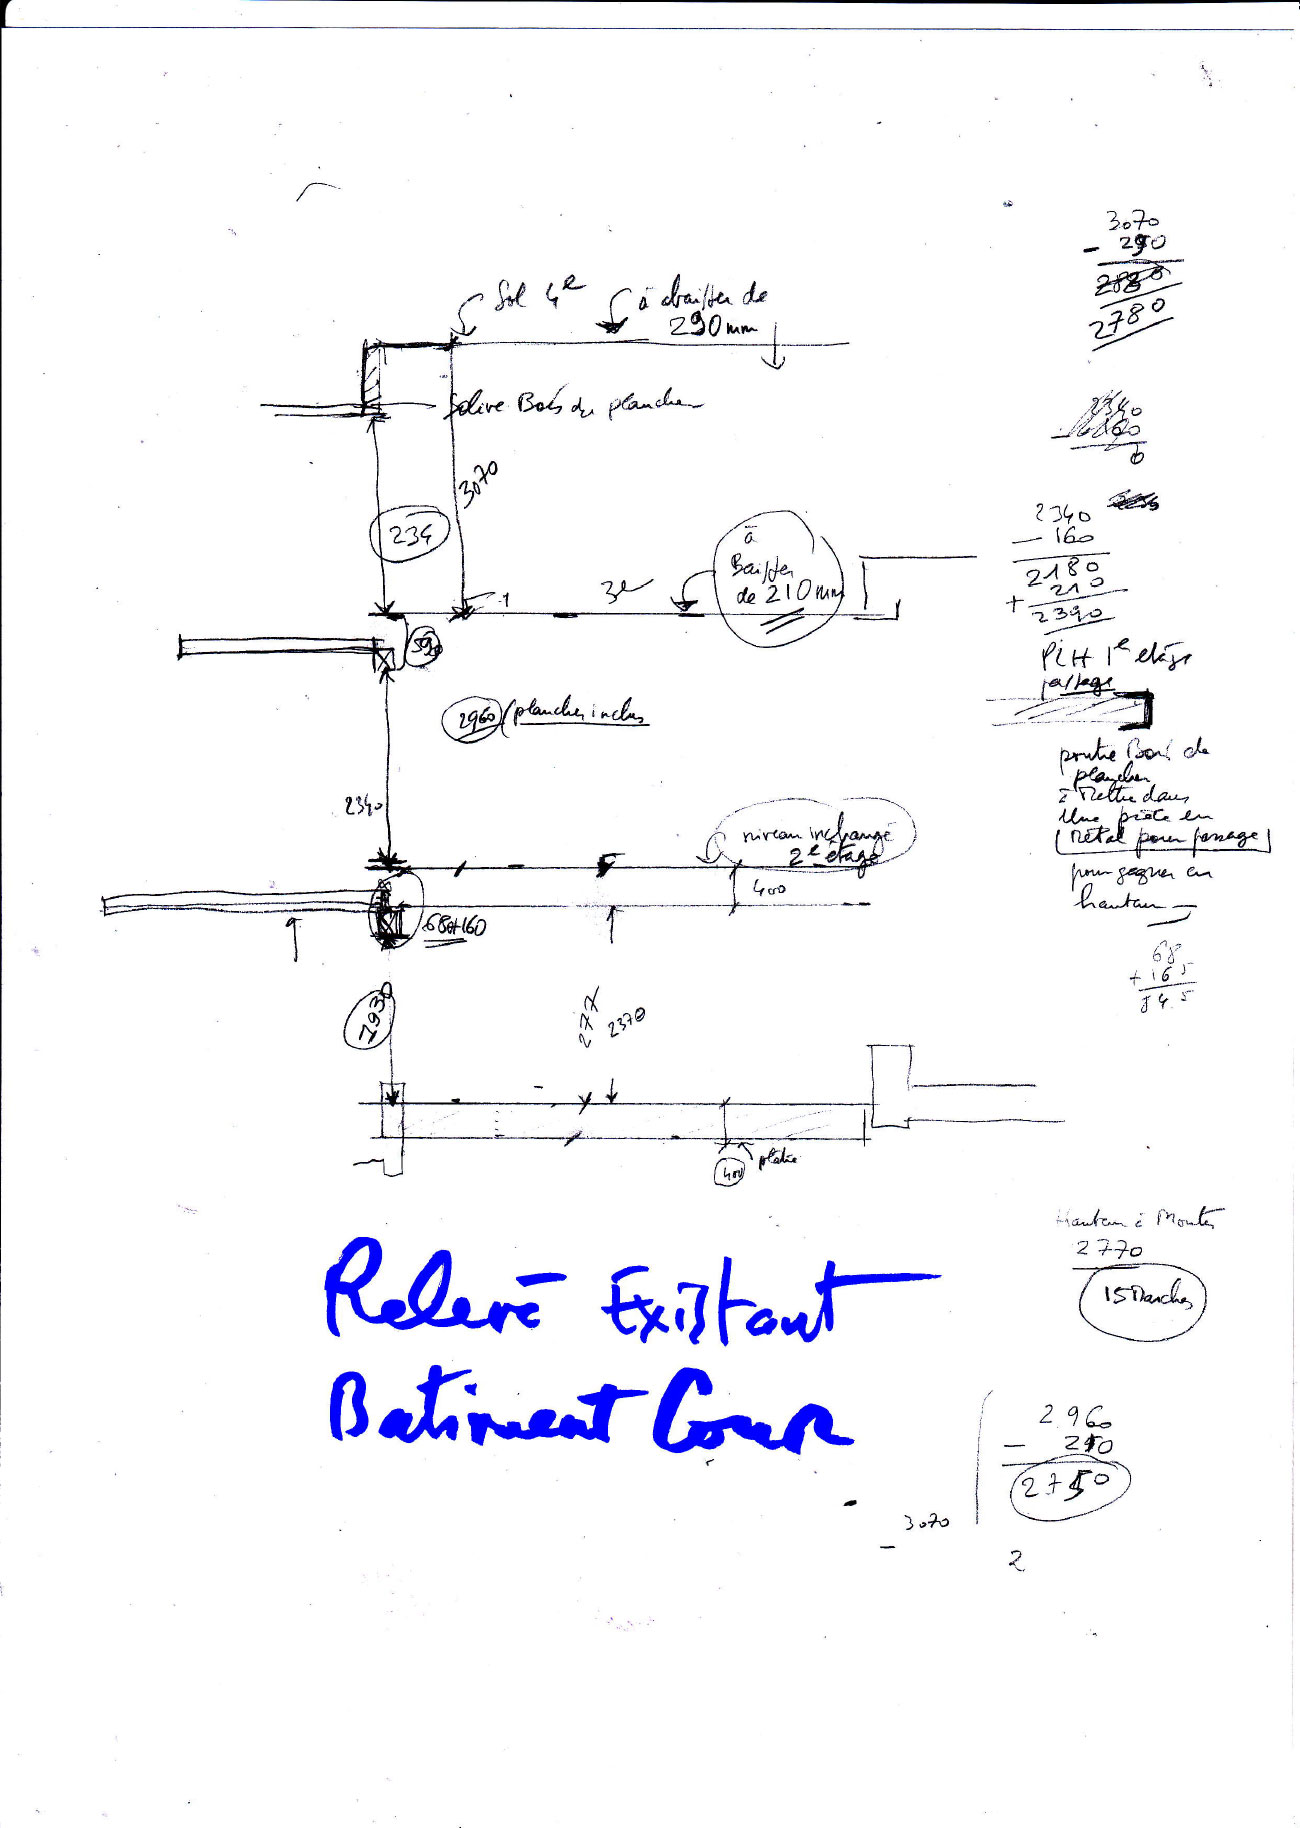 3070
- 290
2780
Sol 4e
à baisser de
290 mm
Solive Bois du plancher
3070
234
2340
- 160
2180
+ 210
2390
à
Baisser
de 210 mm
3e
590
PLH 1e etage
passage
2960 / plancher inclus
poutre Bois de
plancher
à Mettre dans
Une pièce en
Métal pour passage
pour gagner en
hauteur
2340
niveau inchangé
2e étage
400
68+160
68
+ 165
84.5
1930
277
2370
400
platre
Hauteur à Monter
2770
15 Marches
Relevé Existant
Batiment Cour
2960
- 210
2750
3070
2